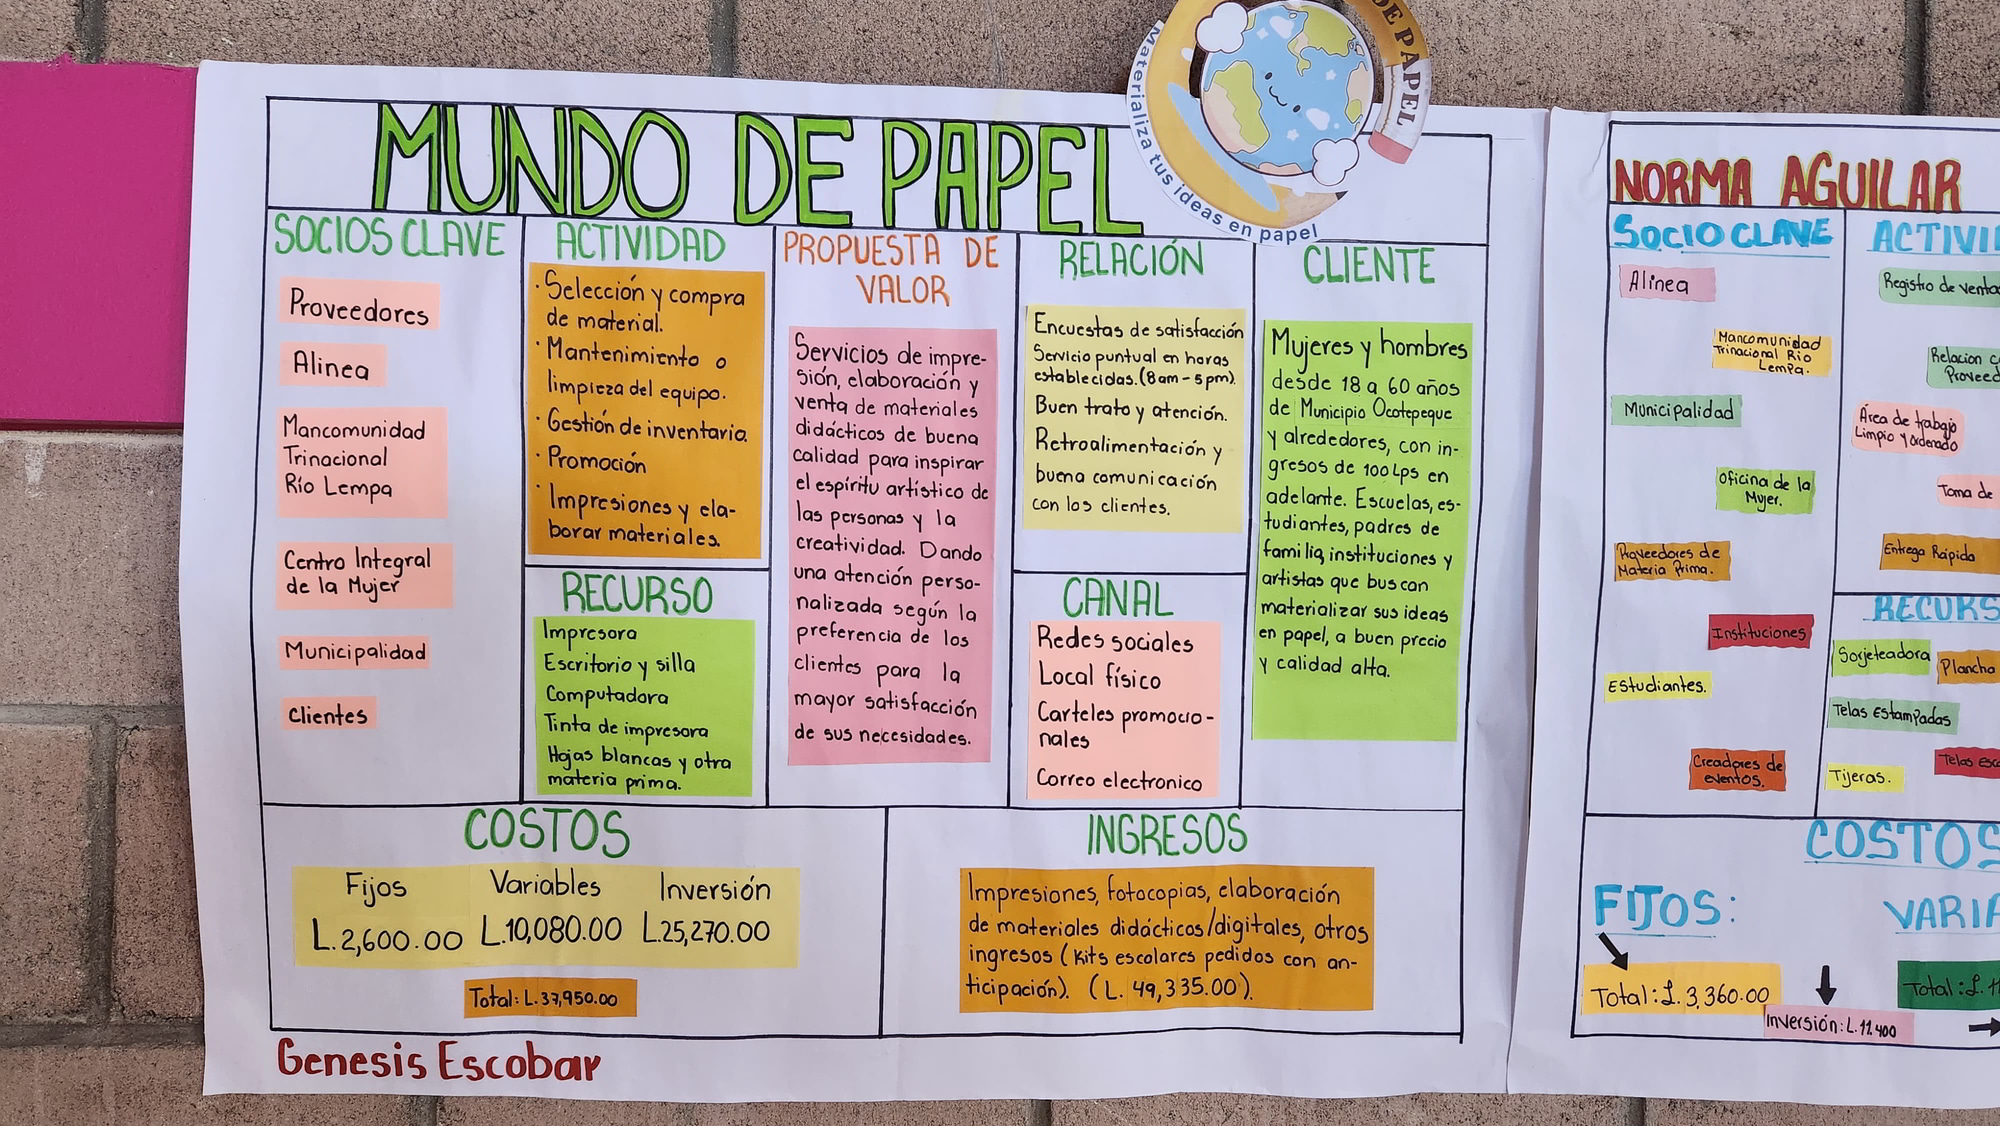 MUNDO DE PAPEL
DE PAPEL
Materializa tus ideas en papel
SOCIOS CLAVE
Proveedores
Alinea
Mancomunidad
Trinacional
Río Lempa
Centro Integral
de la Mujer
Municipalidad
Clientes
ACTIVIDAD
· Selección y compra
de material.
· Mantenimiento o
limpieza del equipo.
· Gestión de inventario.
· Promoción
· Impresiones y ela-
borar materiales.
RECURSO
Impresora
Escritorio y silla
Computadora
Tinta de impresora
Hojas blancas y otra
materia prima.
PROPUESTA DE
VALOR
Servicios de impre-
sión, elaboración y
venta de materiales
didácticos de buena
calidad para inspirar
el espíritu artístico de
las personas y la
creatividad. Dando
una atención perso-
nalizada según la
preferencia de los
clientes para la
mayor satisfacción
de sus necesidades.
RELACIÓN
Encuestas de satisfacción
Servicio puntual en horas
establecidas. (8am - 5pm).
Buen trato y atención.
Retroalimentación y
buena comunicación
con los clientes.
CANAL
Redes sociales
Local físico
Carteles promocio-
nales
Correo electronico
CLIENTE
Mujeres y hombres
desde 18 a 60 años
de Municipio Ocotepeque
y alrededores, con in-
gresos de 100 Lps en
adelante. Escuelas, es-
tudiantes, padres de
familia, instituciones y
artistas que buscan
materializar sus ideas
en papel, a buen precio
y calidad alta.
COSTOS
Fijos Variables Inversión
L.2,600.00 L.10,080.00 L.25,270.00
Total: L.37,950.00
INGRESOS
Impresiones, fotocopias, elaboración
de materiales didácticos/digitales, otros
ingresos (kits escolares pedidos con an-
ticipación). (L. 49,335.00).
Genesis Escobar
NORMA AGUILAR
SOCIO CLAVE
Alinea
Mancomunidad
Trinacional Rio
Lempa.
Municipalidad
Oficina de la
Mujer.
Proveedores de
Materia Prima.
Instituciones
Estudiantes.
Creadores de
eventos.
ACTIVI
Registro de venta
Relacion c
Proveed
Área de trabajo
Limpio y Ordenado
Toma de
Entrega Rápida
RECURS
Sorjeteadora
Plancha
Telas Estampadas
Telas esc
Tijeras.
COSTOS
FIJOS:
VARIA
Total: L. 3,360.00
Inversión: L.11.400
Total: L. 11